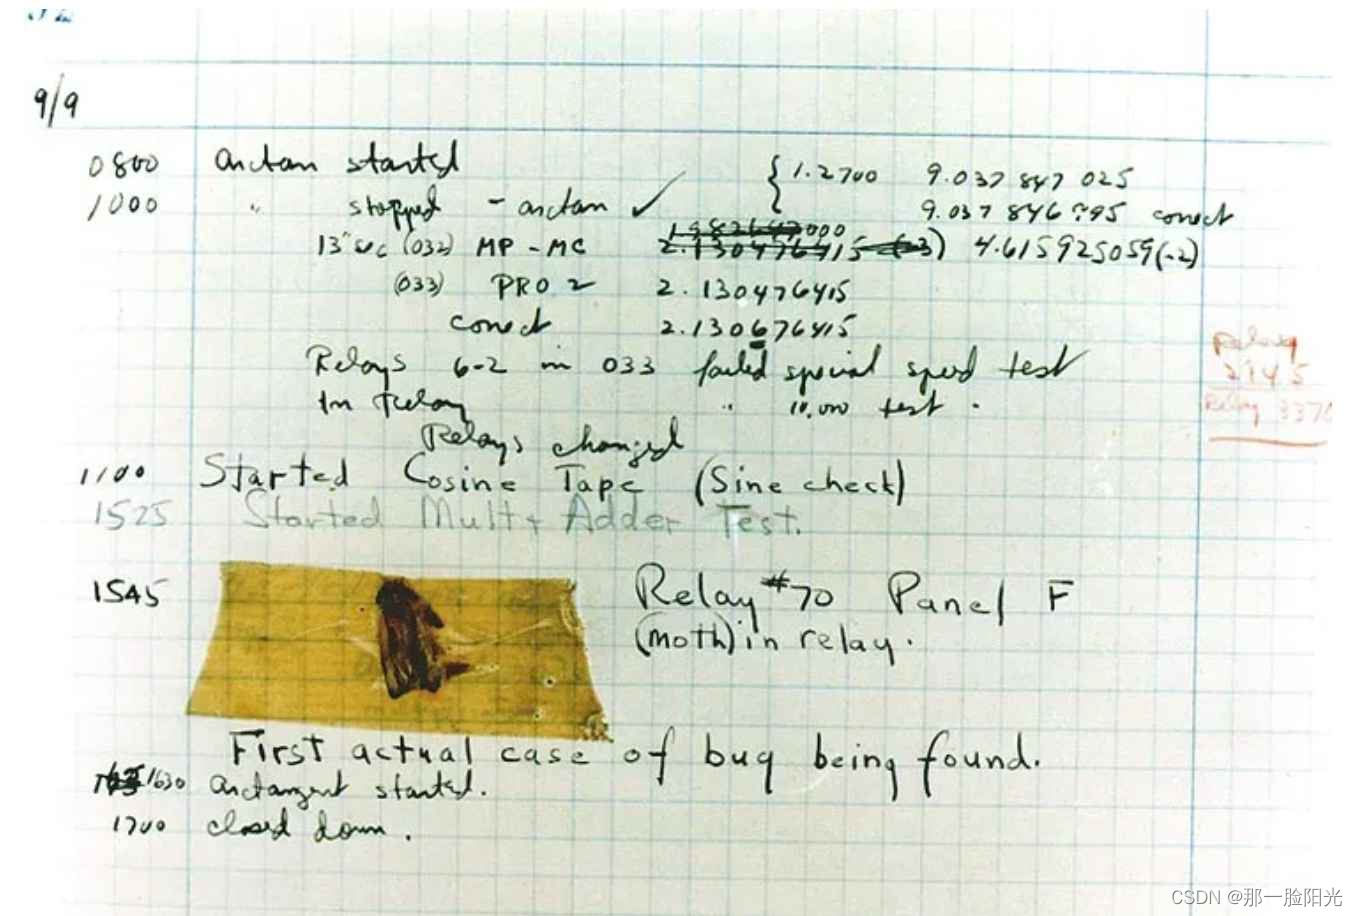 9/9
0800 arctan started { 1.2700 9.037 847 025
1000 " stopped - arctan ✓ 9.037 846 795 correct
000
13" uc (032) MP - MC 2.130476415 (-3) 4.615925059(-2)
(033) PRO 2 2.130476415
correct 2.130676415
Relays 6-2 in 033 failed special speed test
In Relay " 10,000 test .
Relay
2145
Relay 3370
Relays changed
1100 Started Cosine Tape (Sine check)
1525 Started Mult + Adder Test.
1545 Relay #70 Panel F
(moth) in relay.
First actual case of bug being found.
1630 arctangent started.
1700 closed down .
CSDN @那一脸阳光